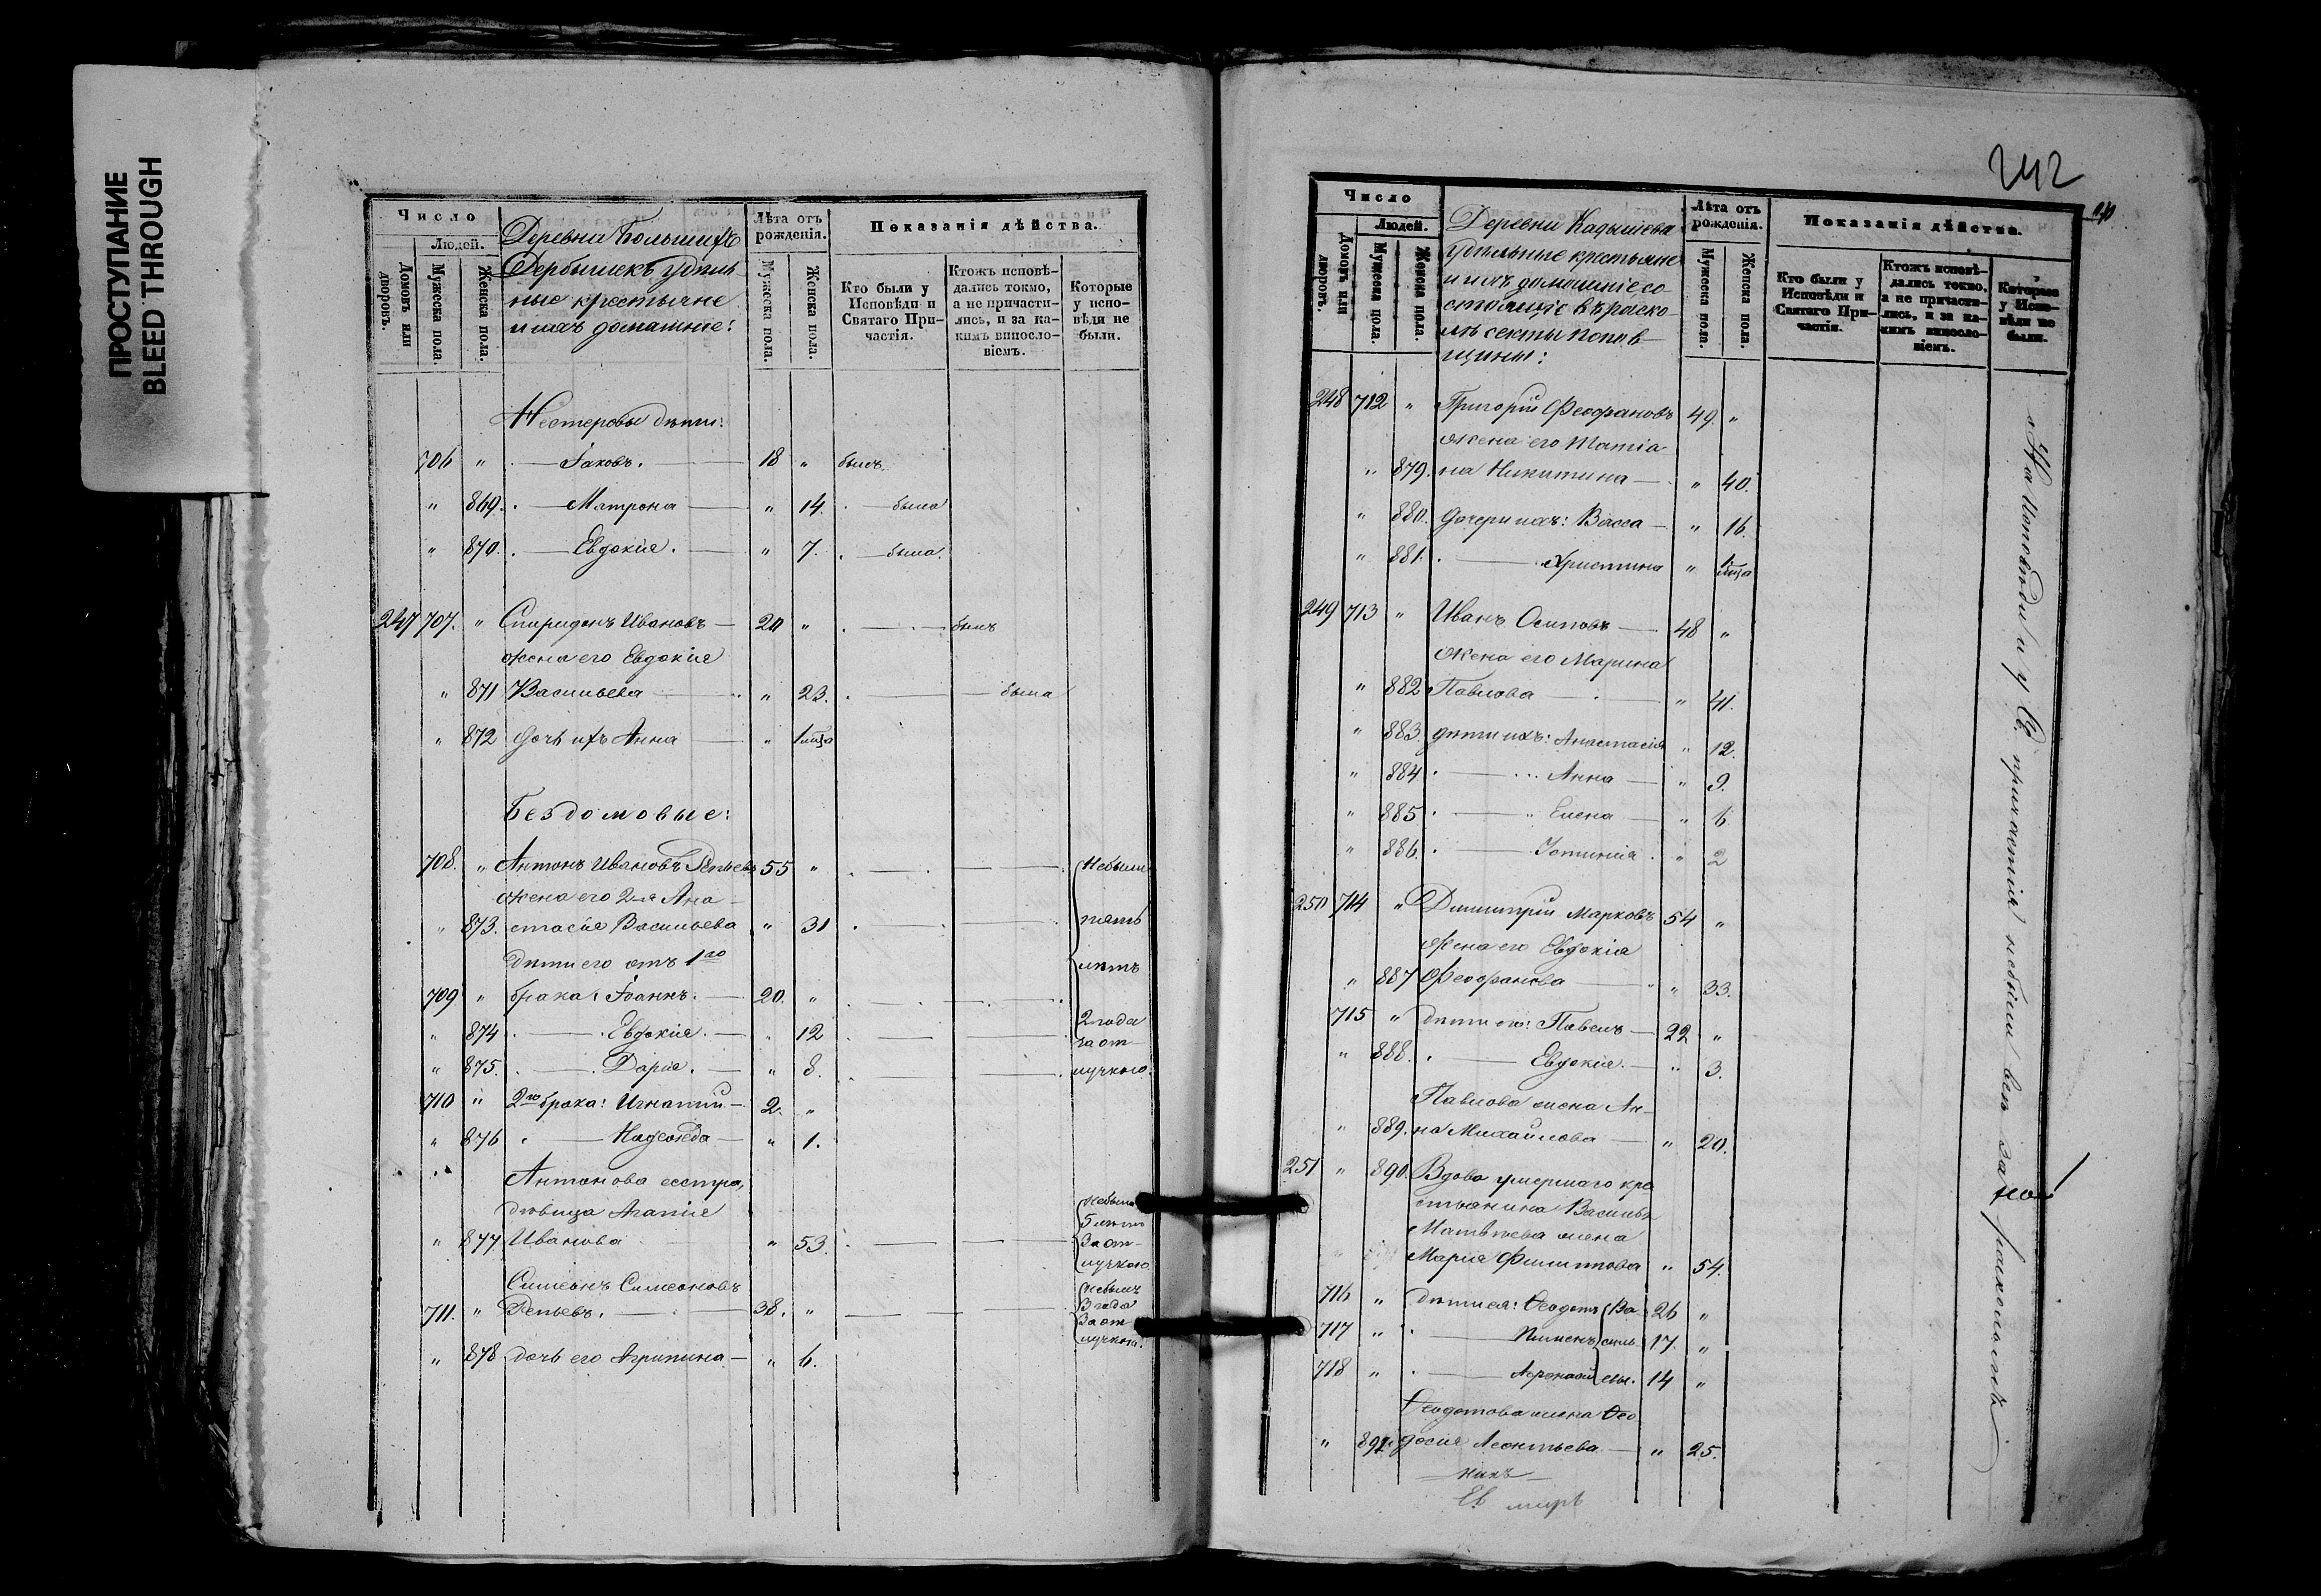 ПРОСТУПАНИЕ
BLEED THROUGH
Число
Людей.
Домовъ или дворовъ.
Мужеска пола.
Женска пола.
Деревни Большихъ
Дербышекъ удѣль
ные крестьяне
и ихъ домашние:
Лѣта отъ рожденія.
Мужеска пола.
Женска пола.
Показанія дѣйства.
Кто были у Исповѣди и Святаго Причастія.
Ктожъ исповѣдались токмо, а не причастились, и за какимъ винословіемъ.
Которые у исповѣди не были.
Нестеровы дѣти:
706 " Іаковъ. 18 " былъ.
" 869. Матрона " 14. была
" 870. Евдокія. " 7. была.
247 707. " Спиридонъ Ивановъ 20 " былъ
жена его Евдокія
" 871 Васильева " 23. была
" 872 дочь ихъ Анна " 1 мца
Бездомовые:
708. " Антонъ Ивановъ Репьевъ 55 " Небыли
жена его 2я Ана
" 873. стасія Васильева " 31 пять
дѣти его отъ 1го лѣтъ
709 " брака: Іоаннъ. 20. "
" 874 Евдокія. " 12 2 года
за от
" 875. Дарія. " 8. лучкою.
710 " 2го брака: Игнатий 2. "
" 876 Надежда " 1.
Антонова сестра,
дѣвица Агапія
" 877 Иванова " 53. небыла 5 лѣтъ За от лучкою
Симеонъ Симеоновъ
711. " Репьевъ. 38. " небылъ 3 года За от лучкою.
" 878 дочь его Агрипина " 6.
242
Число
Людей.
Домовъ или дворовъ.
Мужеска пола.
Женска пола.
Деревни Кадышева
удѣльные крестьяне
и ихъ домашніе со
стоящіе въ раско
лѣ секты Попов
щины:
Лѣта отъ рожденія.
Мужеска пола.
Женска пола.
Показанія дѣйства.
Кто были у Исповѣди и Святаго Причастія.
Ктожъ исповѣдались токмо, а не причастились, и за какимъ винословіемъ.
Которые у Исповѣди не были.
248 712 " Григорій Феофановъ 49. "
жена его Татіа
" 879. на Никитина " 40.
" 880. дочери ихъ: Васса " 16.
" 881. Христина " 1 мца
249 713 " Иванъ Осиповъ 48 "
жена его Марина
" 882 Павлова " 41.
" 883. дѣти ихъ: Анастасія " 12.
" 884 Анна " 9.
" 885 Елена " 6
" 886. Устинія " 2
250 714 " Димитрій Марковъ 54 "
жена его Евдокія
" 887 Феофанова " 33.
715 " дѣти его: Павелъ 22 "
" 888. Евдокія. " 3.
Павлова жена Ан
" 889. на Михайлова " 20.
251 " 890. Вдова умершаго кре
стьянина Василья
Матвѣева жена
Марія Филиппова " 54.
716 " дѣти ея: Ѳеодотъ Ва 26 "
717 " Пименъ силь 17. "
718 " Афонасій евы. 14 "
Ѳеодотова жена Ѳео
" 891 досія Леонтьева " 25.
На Исповѣди и у Св. причастія небыли всѣ за расколомъ